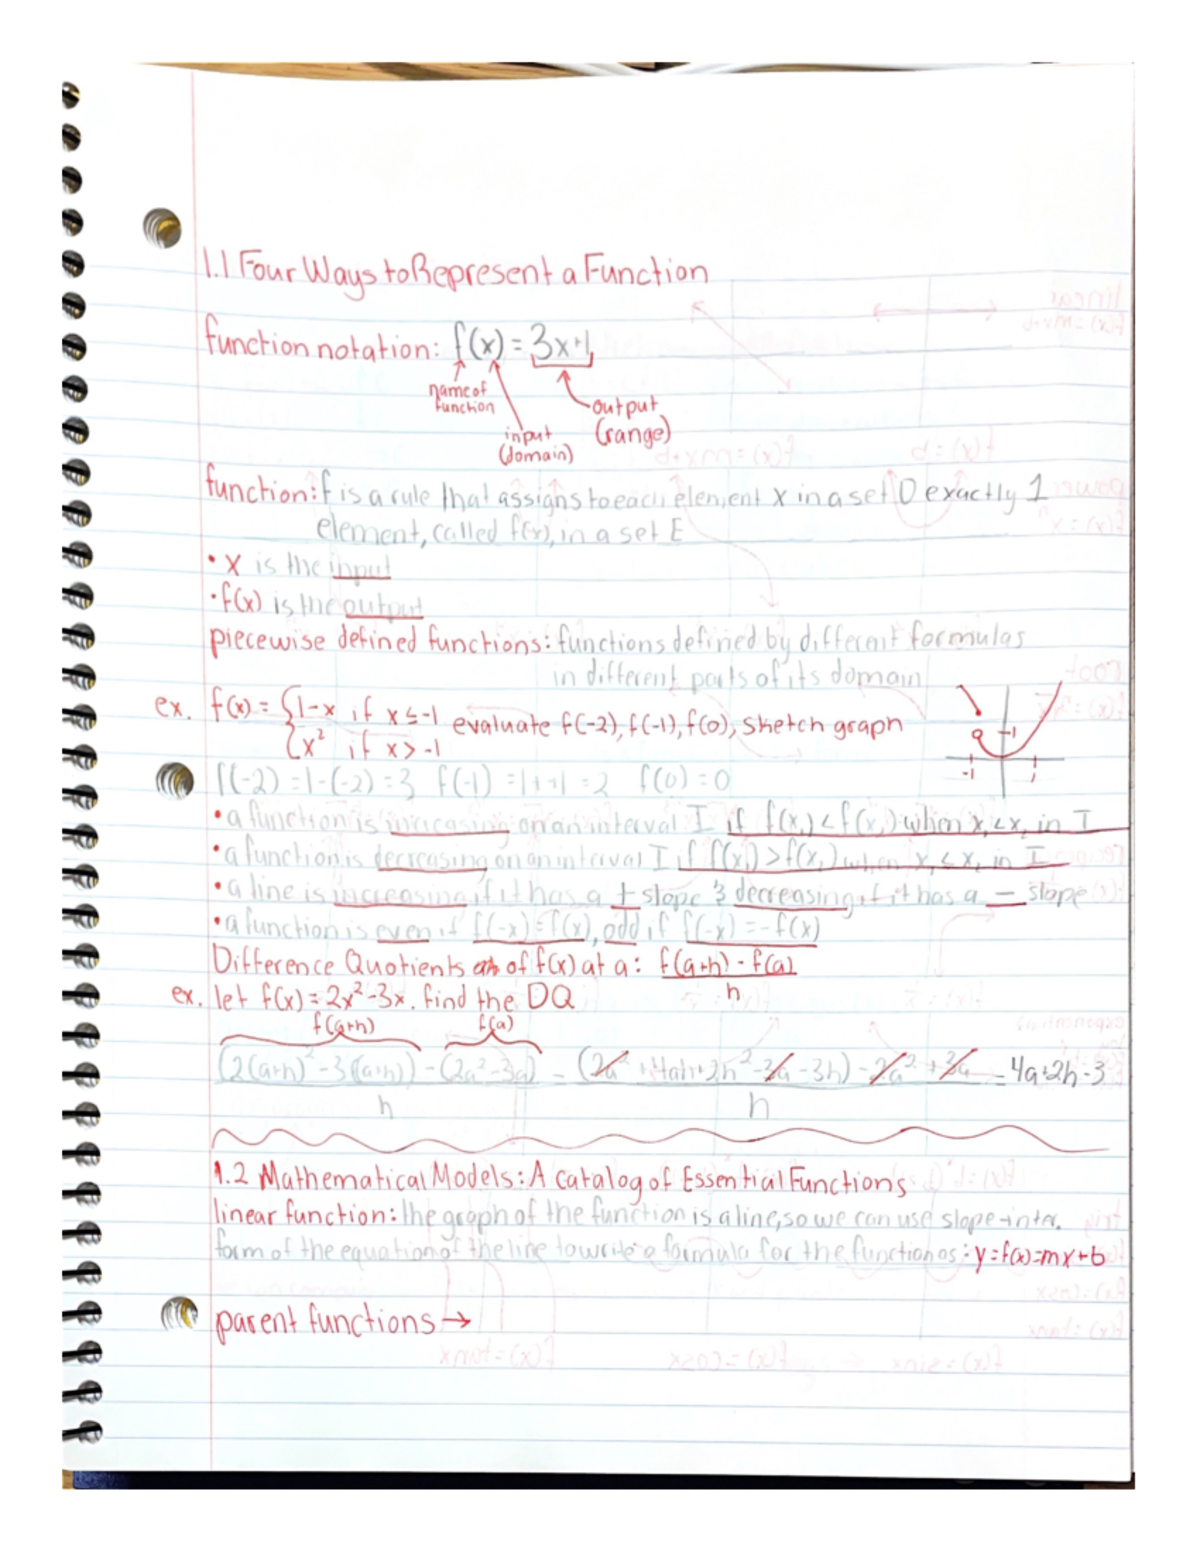 1.1 Four Ways to Represent a Function
function notation: f(x) = 3x+1
name of function
output (range)
input (domain)
function: f is a rule that assigns to each element x in a set D exactly 1
element, called f(x), in a set E
• x is the input
• f(x) is the output
piecewise defined functions: functions defined by different formulas
in different parts of its domain
ex. f(x) = { 1-x if x ≤ -1
{ x² if x > -1
evaluate f(-2), f(-1), f(0), sketch graph
1
-1 1
f(-2) = 1-(-2) = 3 f(-1) = 1+1 = 2 f(0) = 0
• a function is increasing on an interval I if f(x₁) < f(x₂) when x₁ < x₂ in I
• a function is decreasing on an interval I if f(x₁) > f(x₂) when x₁ < x₂ in I
• a line is increasing if it has a + slope & decreasing if it has a — slope
• a function is even if f(-x) = f(x), odd if f(-x) = -f(x)
Difference Quotients of f(x) at a: f(a+h) - f(a) / h
ex. let f(x) = 2x²-3x. find the DQ
f(a+h) f(a)
(2(a+h)² - 3(a+h)) - (2a²-3a) / h = (2a² + 4ah + 2h² - 3a - 3h) - 2a² + 3a / h = 4a+2h-3
1.2 Mathematical Models: A Catalog of Essential Functions
linear function: the graph of the function is a line, so we can use slope-inter.
form of the equation of the line to write a formula for the function as: y = f(x) = mx+b
parent functions →